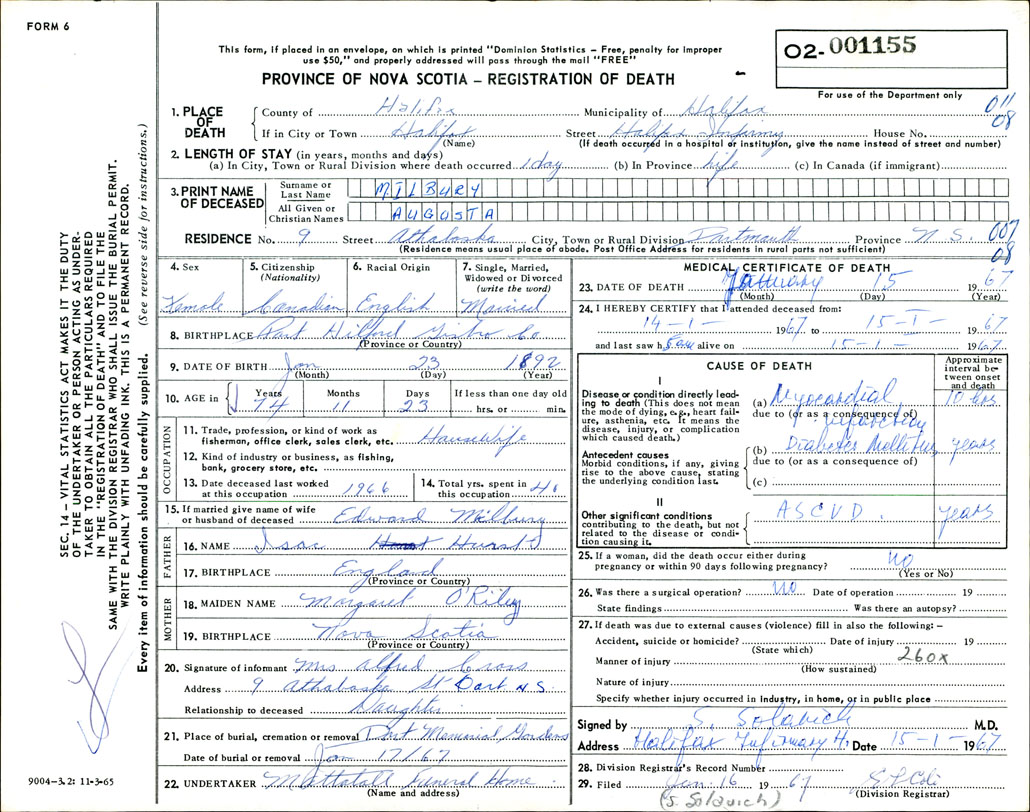 FORM 6
This form, if placed in an envelope, on which is printed "Dominion Statistics – Free, penalty for improper
use $50," and properly addressed will pass through the mail "FREE"
02-001155
PROVINCE OF NOVA SCOTIA – REGISTRATION OF DEATH
For use of the Department only
1. PLACE OF DEATH
County of Halifax Municipality of Halifax 011
If in City or Town Halifax Street Halifax Infirmary House No. 08
(Name) (If death occurred in a hospital or institution, give the name instead of street and number)
2. LENGTH OF STAY (in years, months and days)
(a) In City, Town or Rural Division where death occurred 1 day (b) In Province life (c) In Canada (if immigrant)
3. PRINT NAME OF DECEASED
Surname or Last Name MILBURY
All Given or Christian Names AUGUSTA
RESIDENCE No. 9 Street Athabaska City, Town or Rural Division Dartmouth Province N.S. 007
(Residence means usual place of abode. Post Office Address for residents in rural parts not sufficient) 08
4. Sex
Female
5. Citizenship
(Nationality)
Canadian
6. Racial Origin
English
7. Single, Married,
Widowed or Divorced
(write the word)
Married
8. BIRTHPLACE Port Hilford Co
(Province or Country)
9. DATE OF BIRTH Jan 23 1892
(Month) (Day) (Year)
10. AGE in Years Months Days If less than one day old
74 11 23 hrs. or min.
OCCUPATION
11. Trade, profession, or kind of work as
fisherman, office clerk, sales clerk, etc. Housewife
12. Kind of industry or business, as fishing,
bank, grocery store, etc.
13. Date deceased last worked
at this occupation 1966
14. Total yrs. spent in
this occupation 40
15. If married give name of wife
or husband of deceased Edward Milbury
FATHER
16. NAME Isac Hurst
17. BIRTHPLACE England
(Province or Country)
MOTHER
18. MAIDEN NAME Margaret O'Riley
19. BIRTHPLACE Nova Scotia
(Province or Country)
20. Signature of informant Mrs Alfred Cross
Address 9 Athabaska St Dart N.S.
Relationship to deceased Daughter
21. Place of burial, cremation or removal Dart Memorial Gardens
Date of burial or removal Jan 17/67
22. UNDERTAKER Mattatall Funeral Home
(Name and address)
MEDICAL CERTIFICATE OF DEATH
23. DATE OF DEATH January 15 1967
(Month) (Day) (Year)
24. I HEREBY CERTIFY that I attended deceased from:
14-1- 1967 to 15-1- 1967
and last saw h alive on 15-1- 1967
CAUSE OF DEATH
Approximate
interval be-
tween onset
and death
I
Disease or condition directly lead-
ing to death (This does not mean
the mode of dying, e.g., heart fail-
ure, asthenia, etc. It means the
disease, injury, or complication
which caused death.)
(a) Myocardial 10 hrs
due to (or as a consequence of)
Infarction
Antecedent causes
Morbid conditions, if any, giving
rise to the above cause, stating
the underlying condition last.
(b) Diabetes Mellitus years
due to (or as a consequence of)
(c)
II
Other significant conditions
contributing to the death, but not
related to the disease or condi-
tion causing it.
ASCVD. years
25. If a woman, did the death occur either during
pregnancy or within 90 days following pregnancy? no
(Yes or No)
26. Was there a surgical operation? no Date of operation 19
State findings Was there an autopsy?
27. If death was due to external causes (violence) fill in also the following: –
Accident, suicide or homicide? Date of injury 19
(State which) 260x
Manner of injury
(How sustained)
Nature of injury
Specify whether injury occurred in Industry, in home, or in public place
Signed by S. Solavich M.D.
Address Halifax Infirmary H. Date 15-1- 1967
28. Division Registrar's Record Number
29. Filed Jan 16 1967
(Division Registrar)
(S. Solavich)
SEC. 14 – VITAL STATISTICS ACT MAKES IT THE DUTY
OF THE UNDERTAKER OR PERSON ACTING AS UNDER-
TAKER TO OBTAIN ALL THE PARTICULARS REQUIRED
IN THE "REGISTRATION OF DEATH" AND TO FILE THE
SAME WITH THE DIVISION REGISTRAR WHO SHALL ISSUE THE BURIAL PERMIT.
WRITE PLAINLY WITH UNFADING INK. THIS IS A PERMANENT RECORD.
Every item of information should be carefully supplied. (See reverse side for instructions.)
9004–3.2: 11-3-65